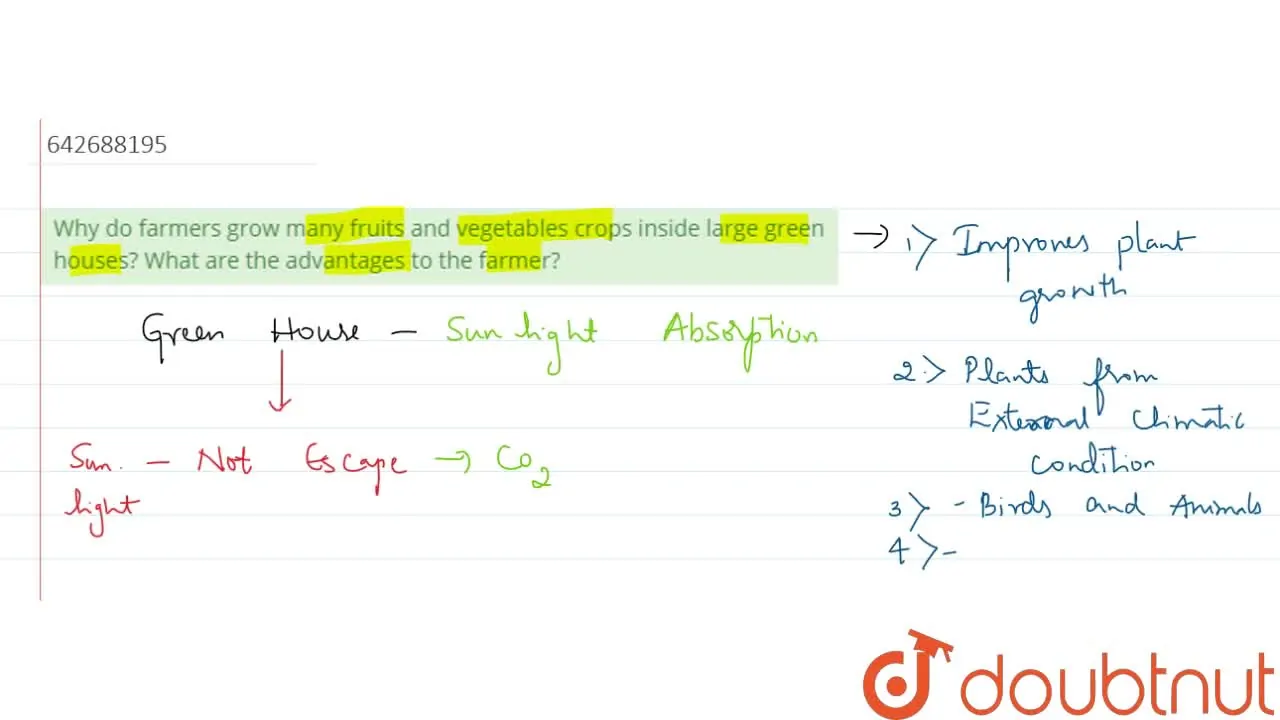 642688195
Why do farmers grow many fruits and vegetables crops inside large green
houses? What are the advantages to the farmer?
Green House - Sun light Absorption
Sun. - Not Escape → CO2
light
→ 1> Improves plant
growth
2.> Plants from
External Climatic
condition
3> - Birds and Animals
4> -
doubtnut